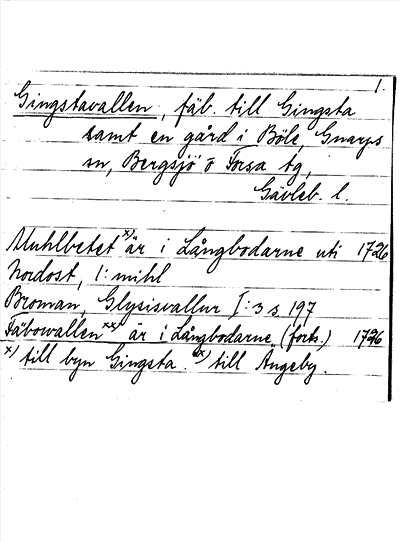 1.
Gingstavallen, fäb. till Gingsta
samt en gård i Böle, Gnarps
sn, Bergsjö o Forsa tg,
Gävleb. l.
Muhlbetet x) är i Långbodarne uti 1726
Nordost, 1: mihl
Broman, Glysisvallur I:3 s. 197
Fäbowallen xx) är i Långbodarne (forts.) 1726
x) till byn Gingsta. xx) till Ängeby.